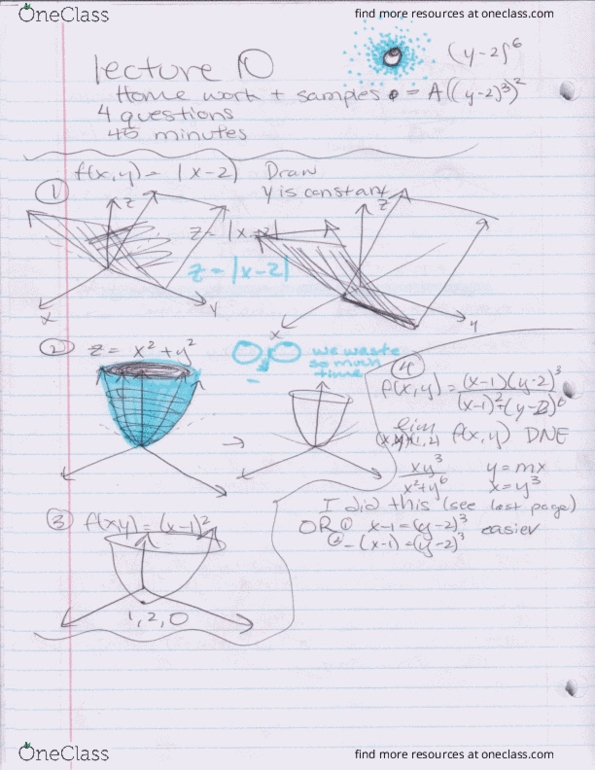 OneClass
find more resources at oneclass.com
lecture 10
(y-2)^6
Home work + samples = A((y-2)^3)^2
4 questions
45 minutes
① f(x,y) = |x-2| Draw
y is constant
z
z = |x-2|
z = |x-2|
x
y
z
x
y
② z = x^2+y^2
we waste
so much
time
③ f(xy) = (x-1)^2
1, 2, 0
④
f(x,y) = (x-1)(y-2)^3
(x-1)^2+(y-2)^6
lim f(x,y) DNE
(x,y)→(1,2)
xy^3 y = mx
x^2+y^6 x = y^3
I did this (see last page)
OR ① x-1 = (y-2)^3 easier
② -(x-1) = (y-2)^3
OneClass
find more resources at oneclass.com